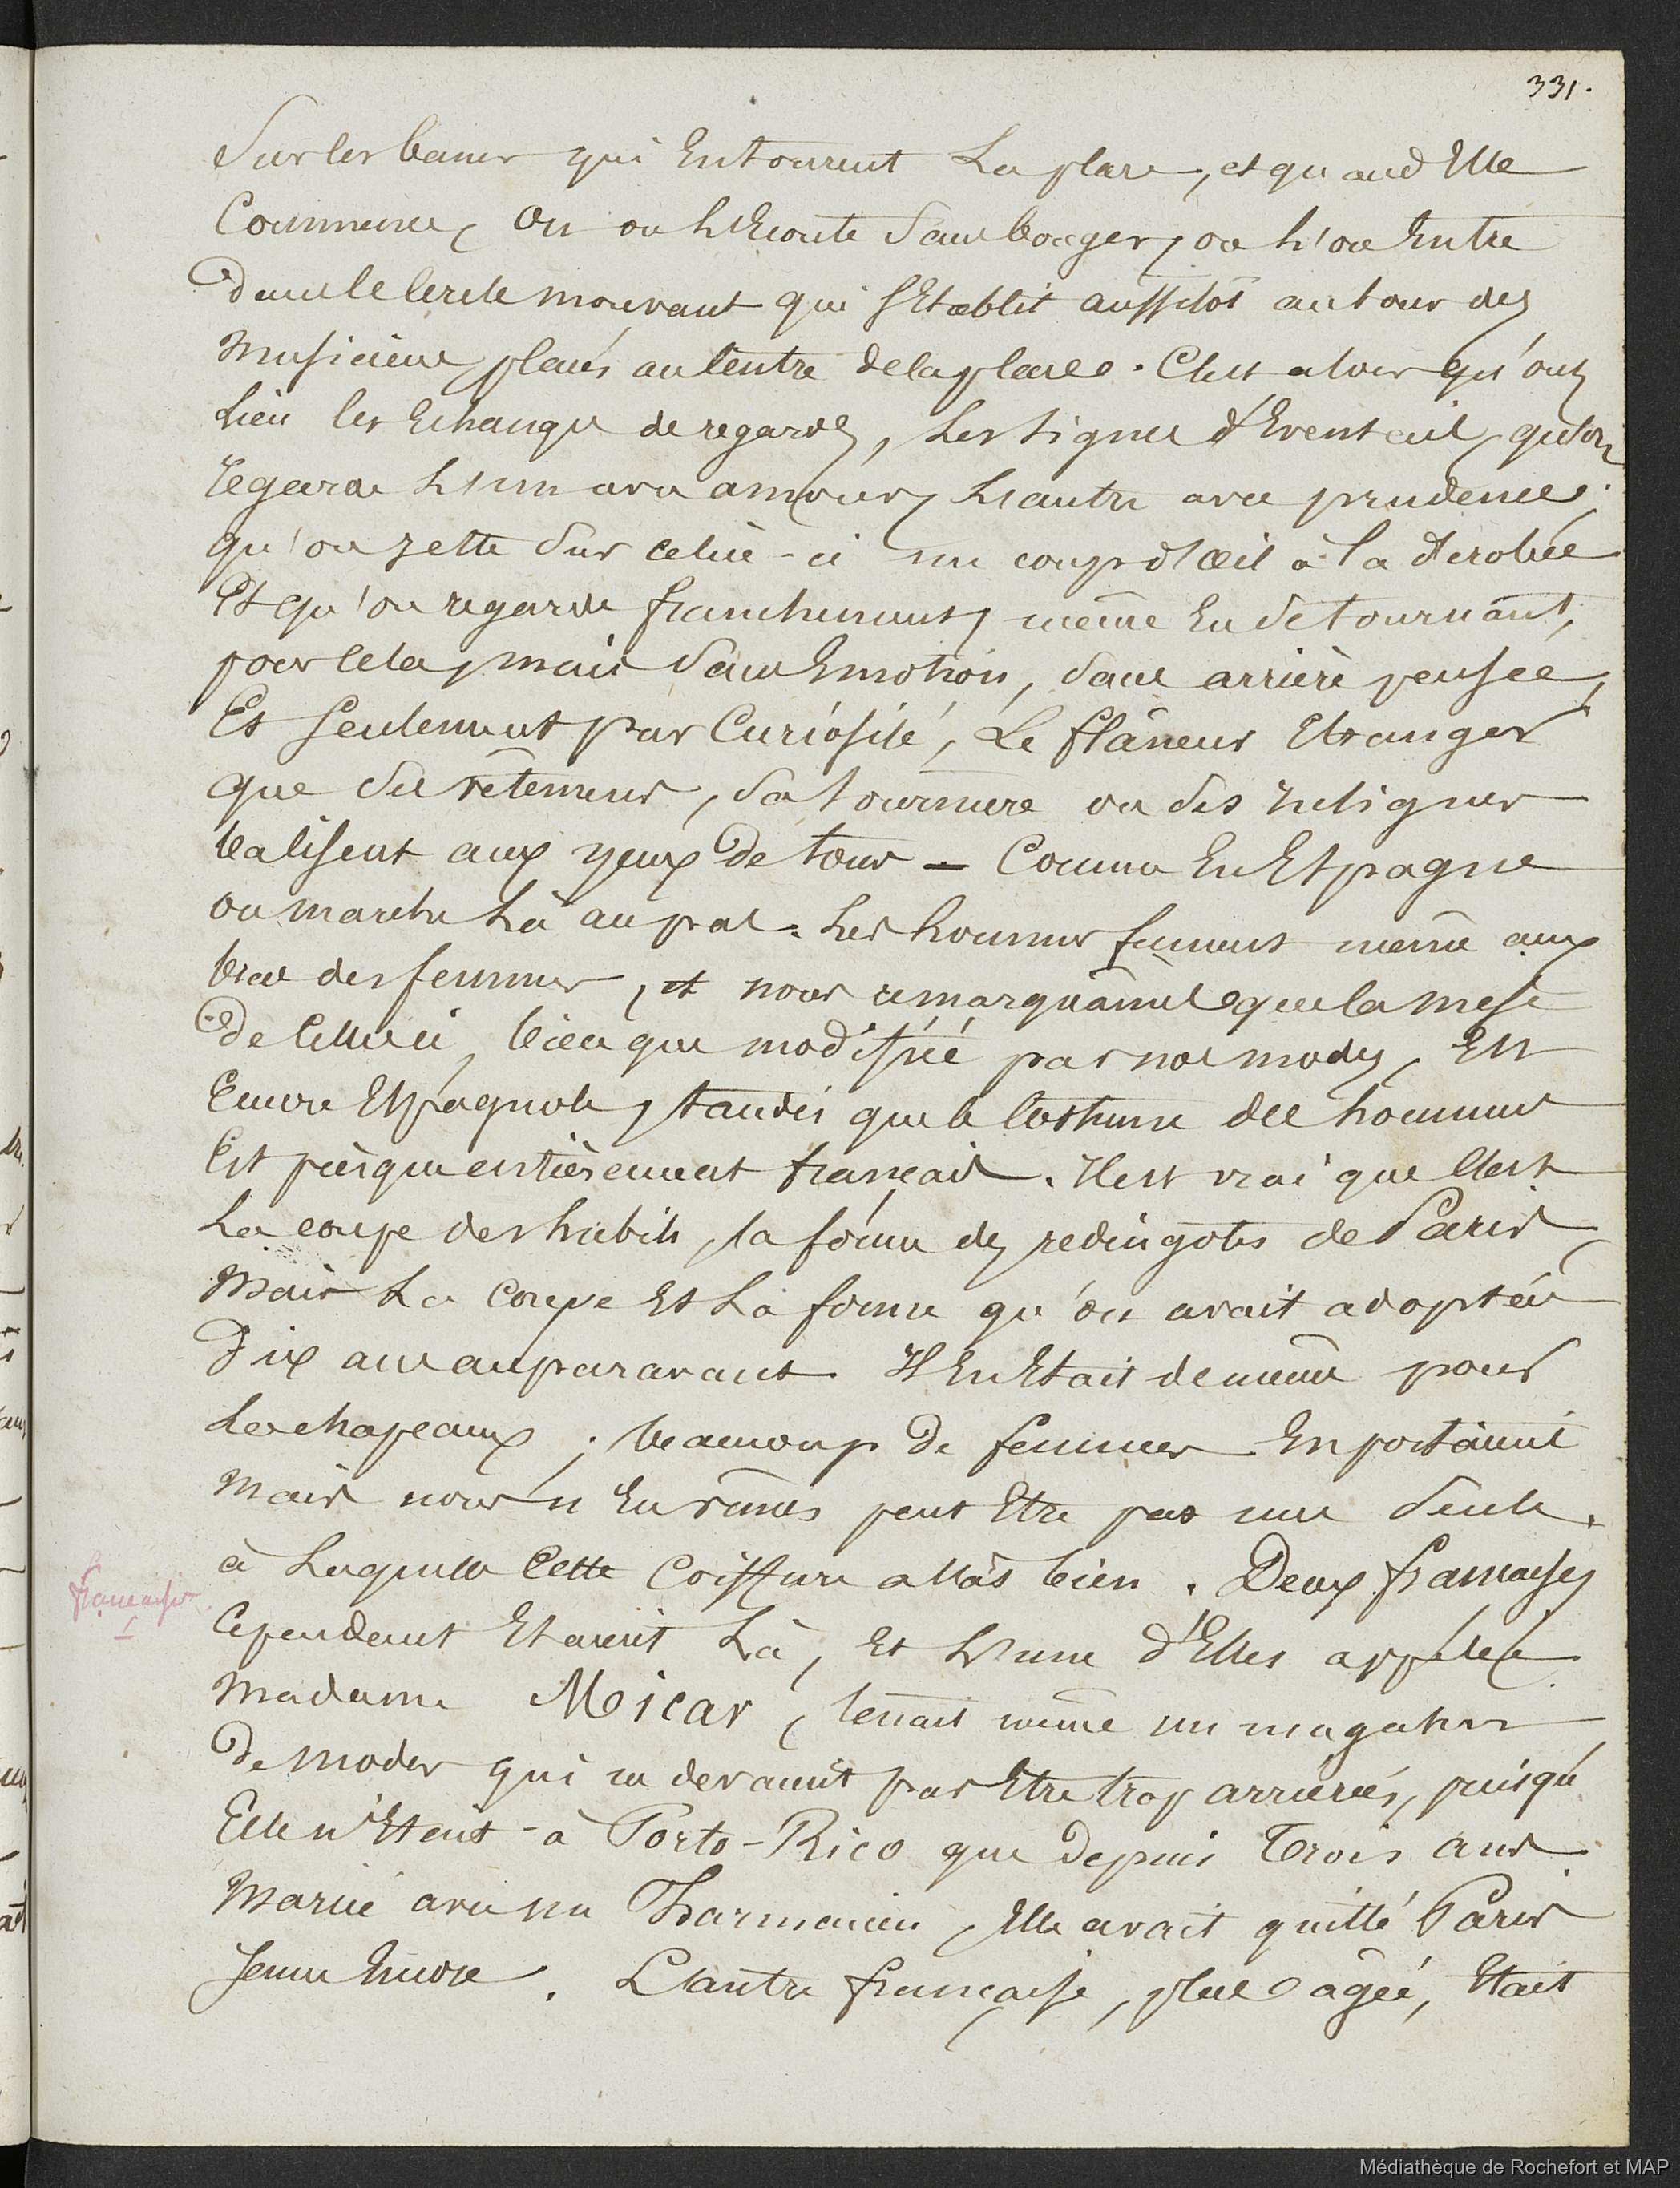 331.
Sur les bancs qui Entourent La place, et quand Elle
Commence, On ou L'Ecoute Sans bouger, ou L'on Entre
Dans le Cercle mouvant qui s'Etablit aussitôt autour des
Musiciens placés au Centre de la place. C'est alors qu'ont
Lieu les Echanges de regards, Les Signes d'Eventail, qu'on
regarde L'un avec amour, L'autre avec prudence;
qu'on jette Sur celui-ci un coup d'œil à la dérobée
Et qu'on regarde franchement, même En détournant,
pour Cela, mais Sans Emotion, Sans arrière pensée,
Et Seulement par Curiosité, Le flâneur Etranger
que Ses vêtements, Sa tournure ou Ses
aux yeux De tous — Comme En Espagne
on marche Là au pas. Les hommes fument même aux
bras des femmes, et nous remarquâmes que la mise
De Celles ci, bien que modifiée par nos modes, Est
Encore Espagnole, tandis que le Costume des hommes
Est presque entièrement français. Il est vrai que C'est
La coupe des habits, la forme des redingotes de Paris,
Mais La Coupe Et La forme qu'on avait adoptées
Dix ans auparavant. Il En Etait de même pour
Les chapeaux; beaucoup De femmes En portaient
Mais nous n'En vîmes peut Etre pas une Seule.
à Laquelle Cette Coiffure allâs bien. Deux françaises
françaises
Cependant Etaient Là, Et L'une d'Elles appelée
Madame Micar, tenait même un magasin
De Modes qui ne devaient pas Etre trop arriérés, puisqu'
Elle n'Etait à Porto-Rico que Depuis Trois ans
Mariée avec un Pharmacien, Elle avait quitté Paris
Jeune Encore. L'autre française, plus agée, Etait
Médiathèque de Rochefort et MAP